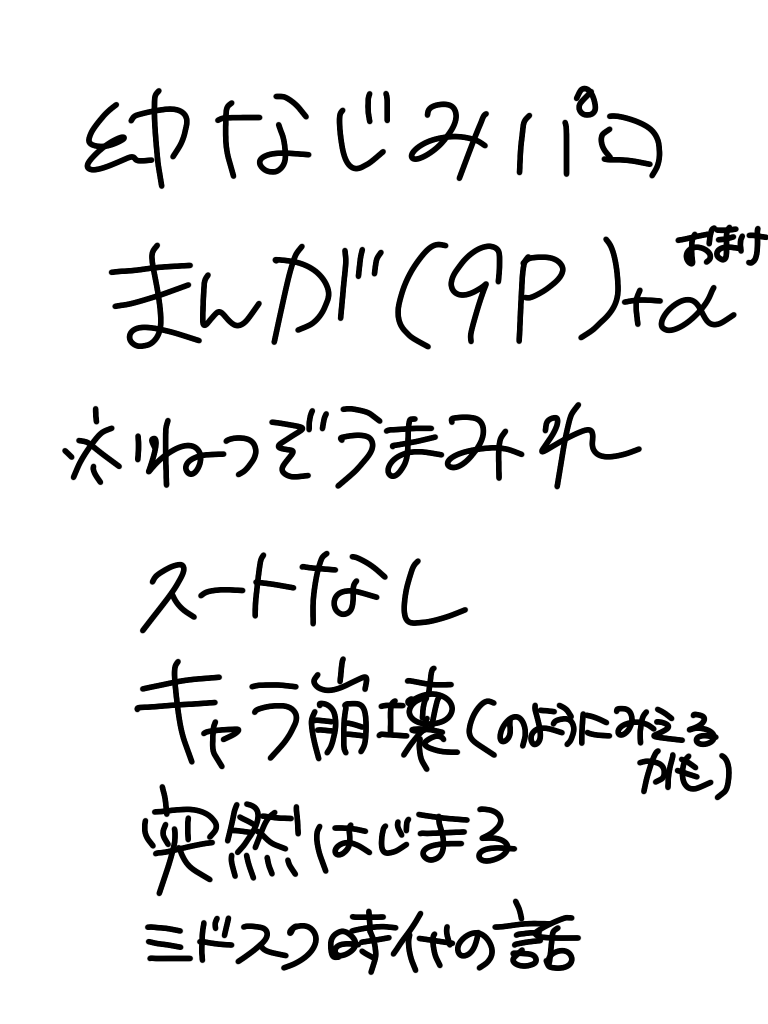 幼なじみパロ
まんが(9P)+α おまけ
※ねつぞうまみれ
スートなし
キャラ崩壊(のようにみえる
かも)
突然はじまる
ミドスク時代の話